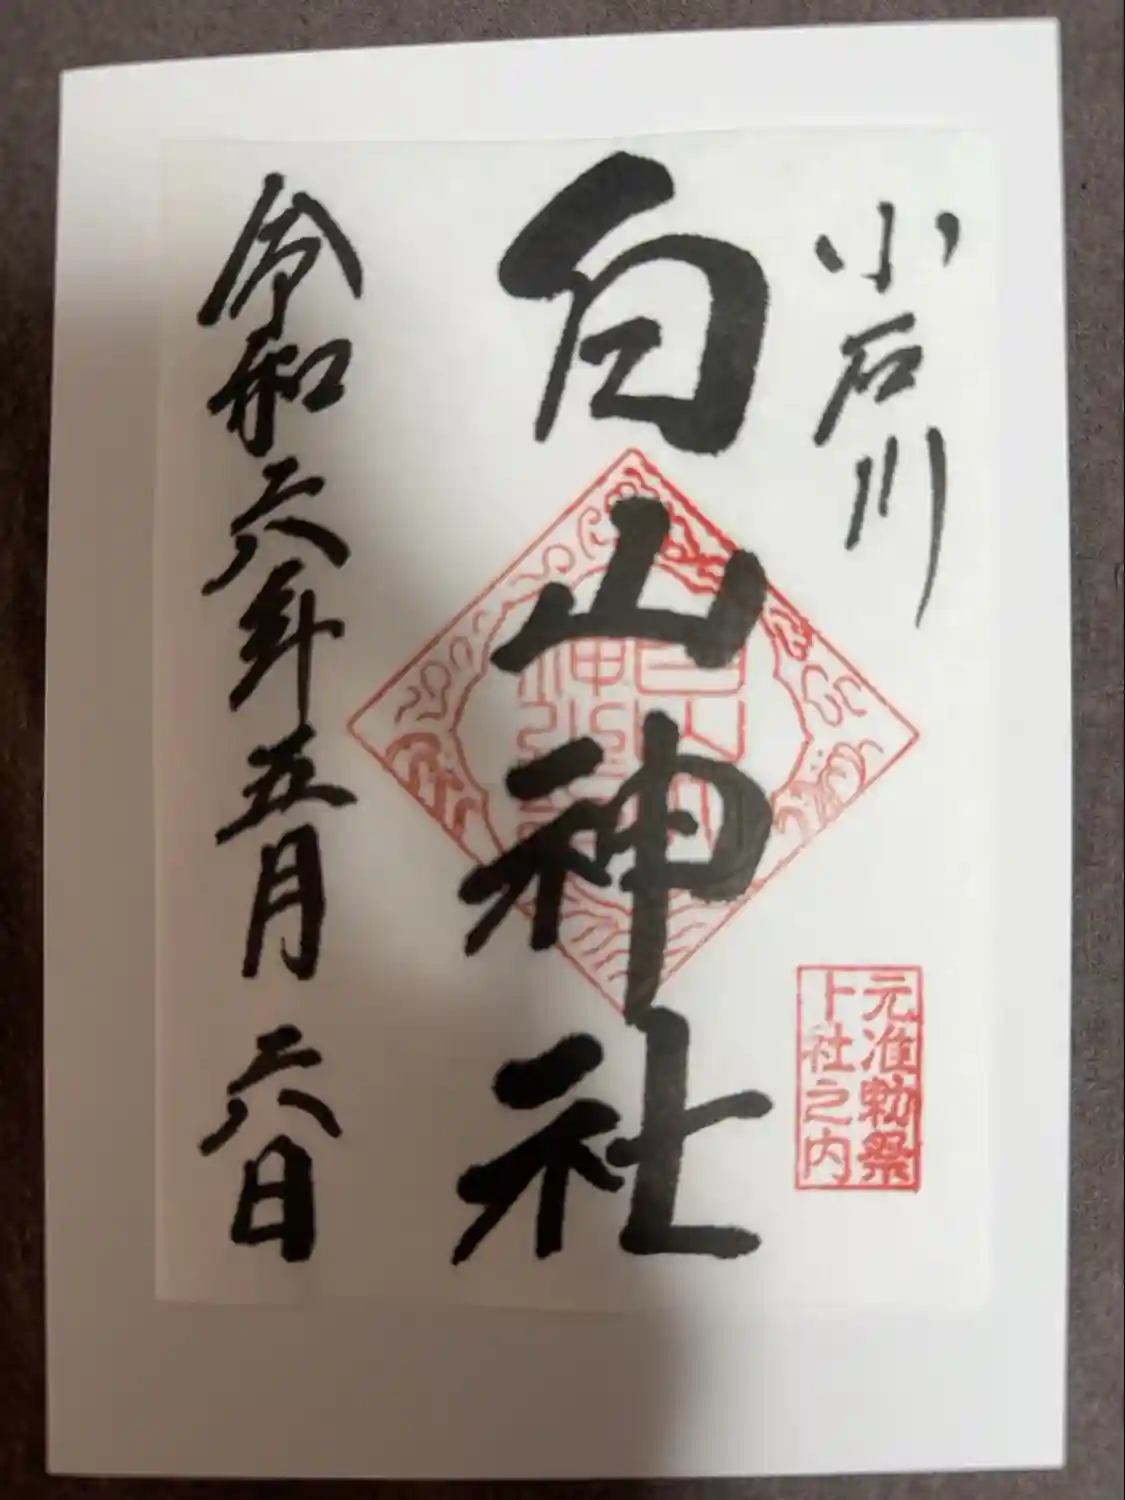 小石川
元准勅祭
十社之内
白山神社
令和六年五月六日